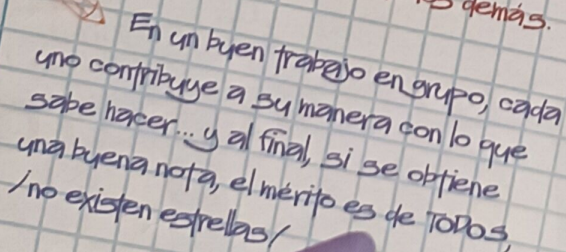 demás.
En un buen trabajo en grupo, cada
uno contribuye a su manera con lo que
sabe hacer... y al final, si se obtiene
una buena nota, el mérito es de TODOS
/no existen estrellas/